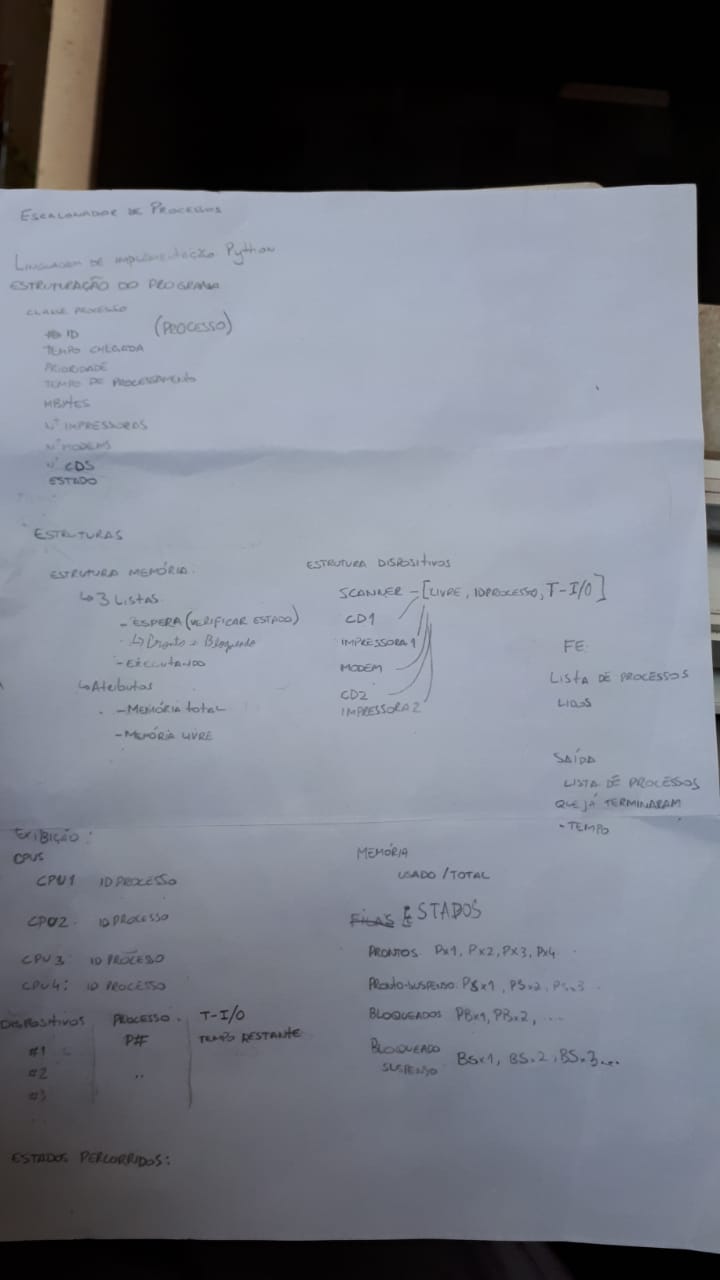 ESCALONADOR DE PROCESSOS
LINGUAGEM DE IMPLEMENTAÇÃO Python
ESTRUTURAÇÃO DO PROGRAMA
CLASSE PROCESSO
ID (PROCESSO)
TEMPO CHEGADA
PRIORIDADE
TEMPO DE PROCESSAMENTO
MBYTES
Nº IMPRESSORAS
Nº MODEMS
Nº CDS
ESTADO
ESTRUTURAS
ESTRUTURA MEMÓRIA.
↳ 3 Listas
- ESPERA (VERIFICAR ESTADO)
- ↳ Pronto e Bloqueado
- EXECUTANDO
↳ Atributos
- MEMÓRIA total
- MEMÓRIA LIVRE
ESTRUTURA DISPOSITIVOS
SCANNER - [LIVRE, IDPROCESSO, T-I/O]
CD1
IMPRESSORA 1
MODEM
CD2
IMPRESSORA 2
FE:
LISTA DE PROCESSOS
LIDOS
SAÍDA
LISTA DE PROCESSOS
QUE JÁ TERMINARAM
- TEMPO
EXIBIÇÃO:
CPUS
CPU1 ID PROCESSO
CPU2 - ID PROCESSO
CPU3: ID PROCESSO
CPU4: ID PROCESSO
DISPOSITIVOS PROCESSO. T-I/O
P# TEMPO RESTANTE
#1
#2 ..
#3
ESTADOS PERCORRIDOS:
MEMÓRIA
USADO / TOTAL
FILAS ESTADOS
PRONTOS. Px1, Px2, Px3, Px4
PRONTO-SUSPENSO: PSx1, PSx2, PSx3 ...
BLOQUEADOS PBx1, PBx2, ...
BLOQUEADO
SUSPENSO BSx1, BSx2, BSx3...